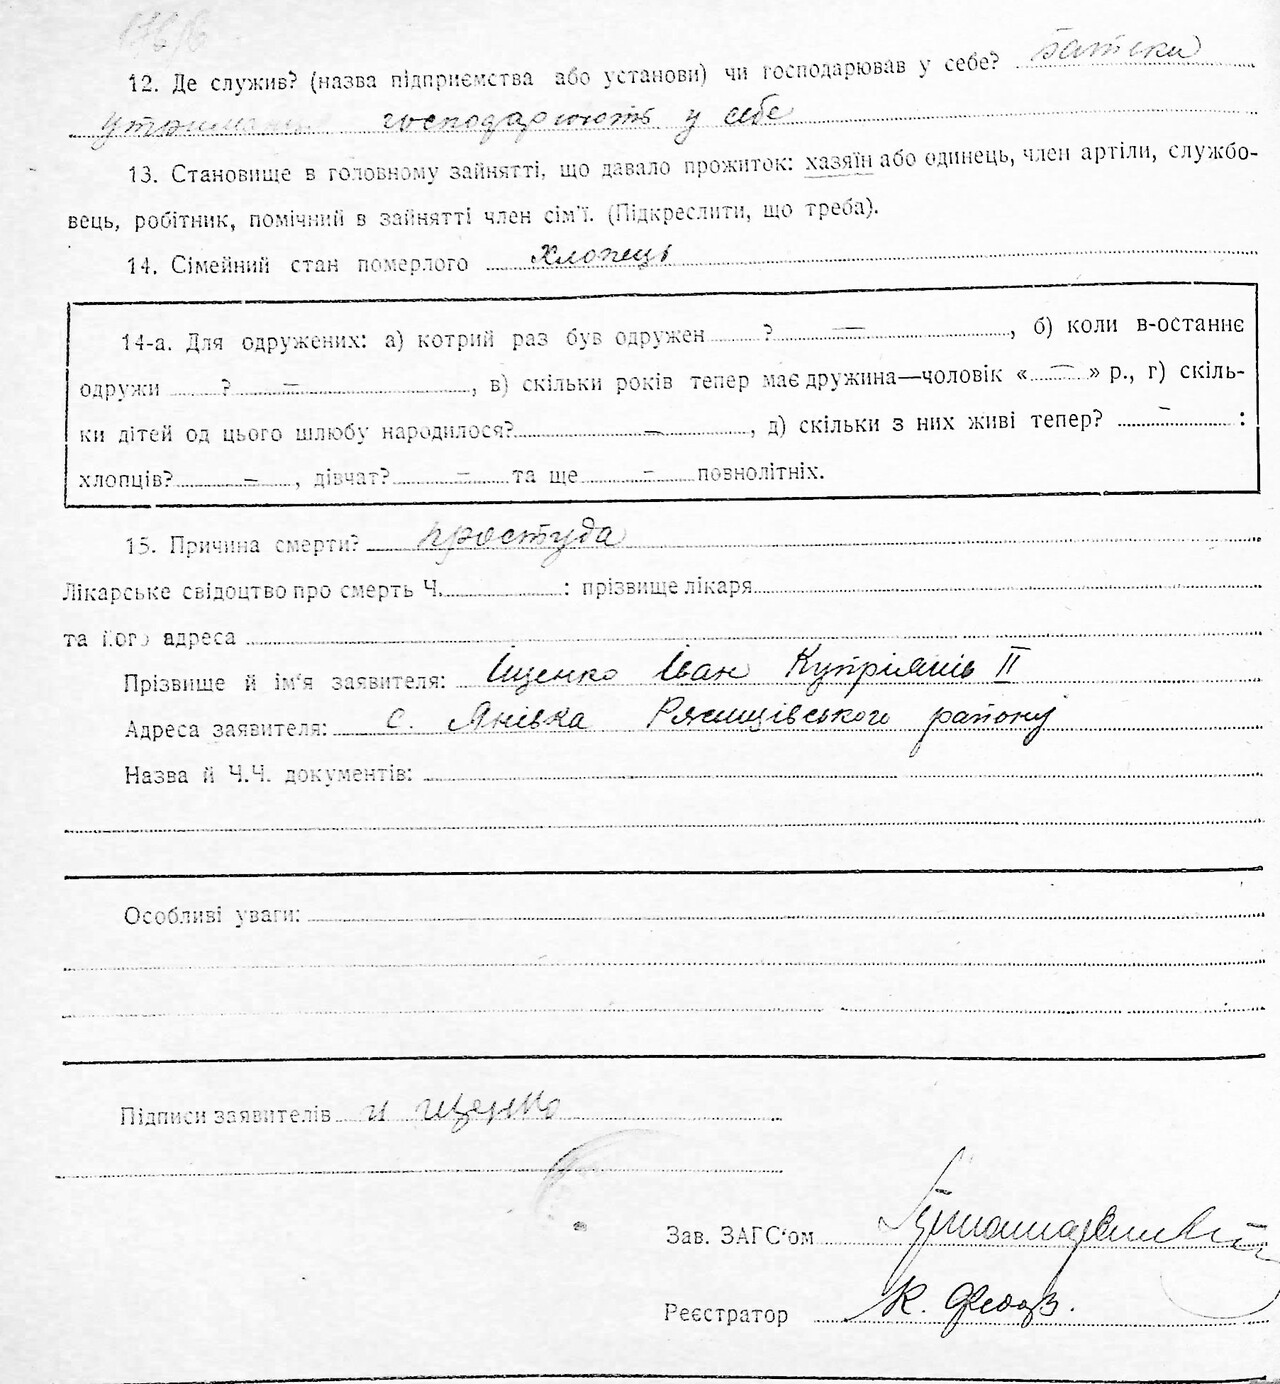 12. Де служив? (назва підприємства або установи) чи господарював у себе? батьки
господарюють у себе
13. Становище в головному зайнятті, що давало прожиток: хазяїн або одинець, член артіли, службо-
вець, робітник, помічний в зайнятті член сім'ї. (Підкреслити, що треба).
14. Сімейний стан померлого хлопець
14-а. Для одружених: а) котрий раз був одружен ? —, б) коли в-останнє
одружи ? —, в) скільки років тепер має дружина—чоловік «—» р., г) скіль-
ки дітей од цього шлюбу народилося? —, д) скільки з них живі тепер? — :
хлопців? —, дівчат? — та ще — повнолітніх.
15. Причина смерти? простуда
Лікарське свідоцтво про смерть Ч. : прізвище лікаря
та його адреса
Прізвище й ім'я заявителя: Іщенко Іван Купріянів II
Адреса заявителя: с. Янівка Ржищівського району
Назва й Ч.Ч. документів:
Особливі уваги:
Підписи заявителів и ищенко
Зав. ЗАГС'ом
Реєстратор К.